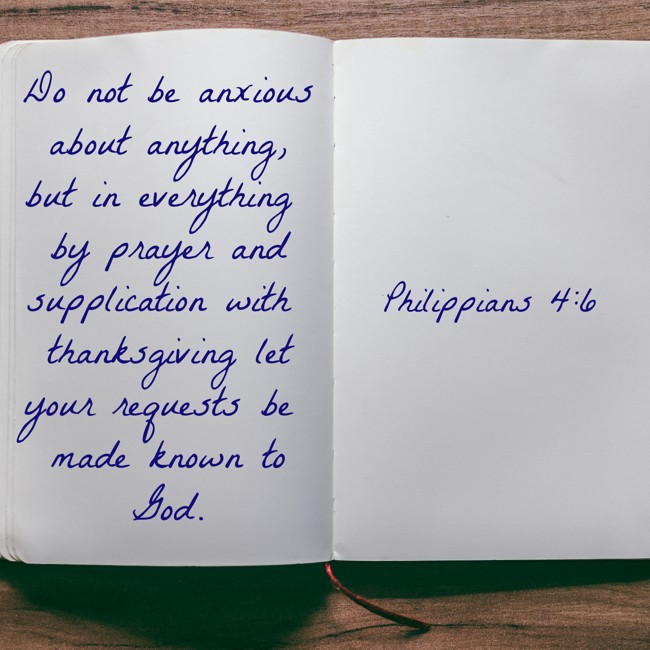 Do not be anxious
about anything,
but in everything
by prayer and
supplication with
thanksgiving let
your requests be
made known to
God.
Philippians 4:6